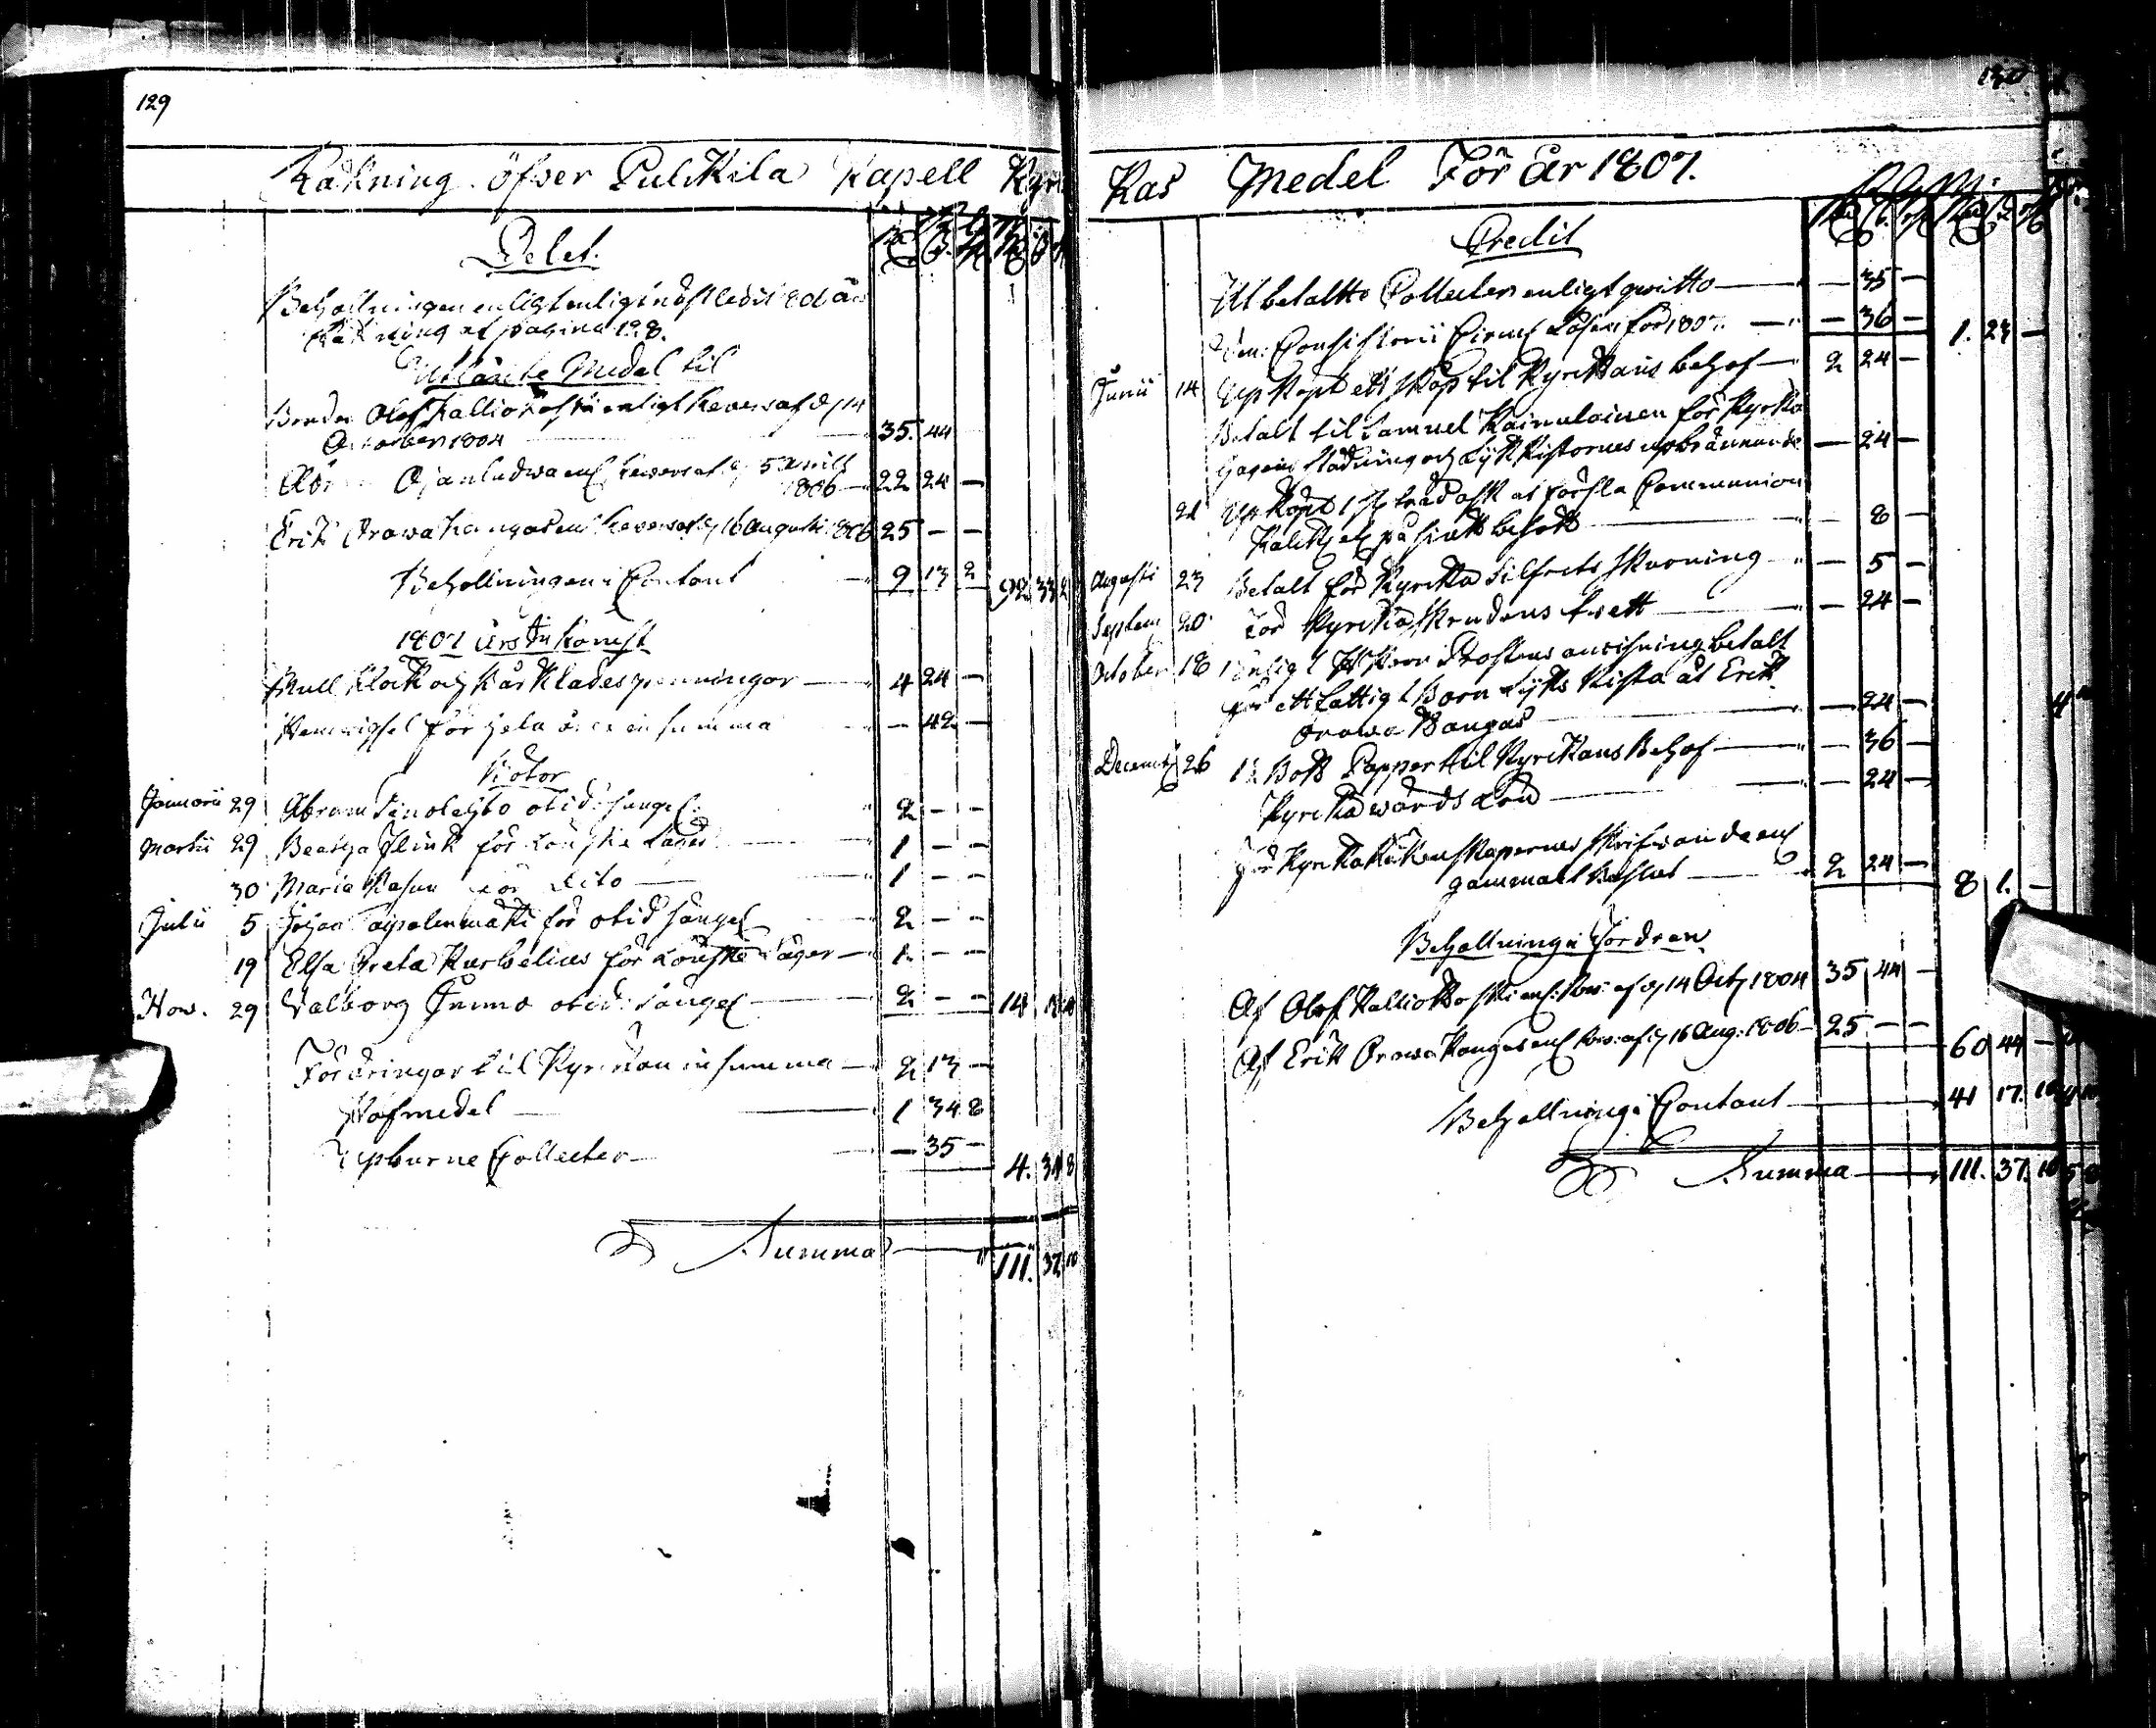 129
Räkning öfver Pulkkila Kapell Kyr
Debet.
Behållningen enligt enligt näst ledit Edårs
Räkning af pagina 128.
Utlånte Medel til
Bonden Olof Kalliokoski enligt Revers af d 14
October 1804 35. 44
Ojanludwa enl Revers af d 5 Aprill
1806 22 24 —
Erik Orawakangas enl Revers af d 16 Augusti 1806 25 — —
Behållningen i Contant 9 13 2 92 33 2
1807 Års Inkomst
Skull Klock och Bårklädes penningar 4 24 —
för hela året in summa — 42 —
Böter
Januarii 29 Abram otid: sängel: 2 — —
Martii 29 Beata Flink för Lönske Läger 1 — —
30 Maria för Dito 1 — —
Julii 5 Johan Taipalenmäki för otid sängel 2 — —
19 Elsa Greta Kurvelius för Lönske Läger 1 — —
Nov. 29 Walborg Junno otid: sängel 2 — — 14 18
Fördringar til Kyrckan in summa 2 13 —
Håfmedel 1 34 8
Upburne Collecter — 35 — 4. 34 8
Summa 111. 37 10
130
Kas Medel För År 1807.
Credit
Utbetalte Collecter enligt qvitto — 35 —
Consistorii Circul Lösen för 1807. — 36 — 1. 23 —
Junii 14 Up Köpt ett skåp til Kyrckans behof 2 24 —
Betalt til Samuel Kainulainen för Kyrko
gagens städning och Lijkkistornes upbrännande — 24 —
21 Up Köpt 1 st träd ask at försla Communion
Kalken på siuk besök — 8 —
Augusti 23 Betalt för Kyrcko Silfrets skurning — 5 —
Septem 20 För Kyrckio skrudens tvett — 24 —
October 18 Enligt H Herr Prostens anvisning betalt
för ett fattigt Barn Lijks Kista åt Erik
Orawa Kangas — 24 —
Decemb 26 1½ Bok Papper til Kyrckans Behof — 36 —
Kyrckowärds Lön — 24 —
För Kyrcko Räkenskapernes skrifwande enl
gammalt Beslut 2 24 — 8 1. —
Behållning i Fordran
Af Olof Kalliokoski enl: Rev: af d 14 Oct 1804 35 44 —
Af Erik Orawa Kangas enl Rev: af d 16 Aug: 1806 25 — — 60 44 —
Behållning i Contant 41 17. 10
Summa 111. 37. 10